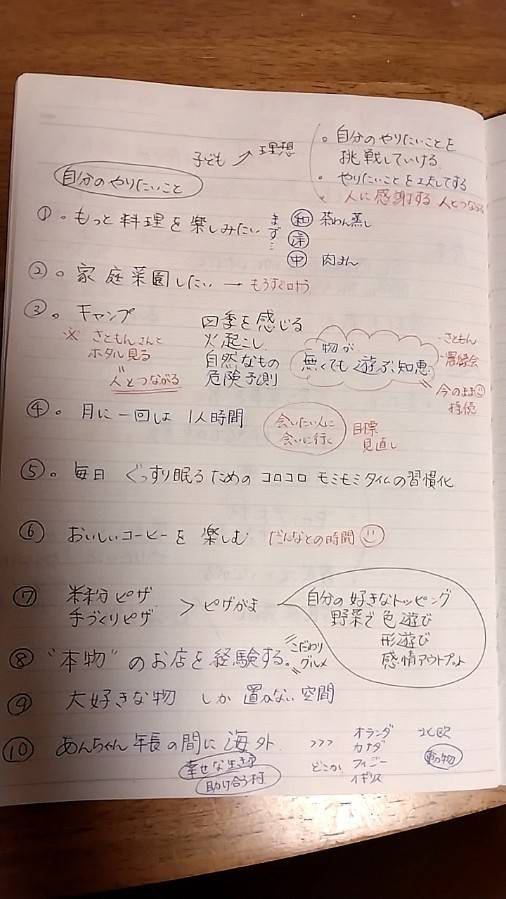 子ども → 理想
。自分のやりたいことを
挑戦していける
。やりたいことを工夫してする
人に感謝する 人とつながる
自分のやりたいこと
① 。もっと 料理を楽しみたい まず…
和 茶わん蒸し
洋
中 肉まん
② 。家庭菜園したい → もうすぐ叶う
③ 。キャンプ
※ さともんさんと
ホタル見る
人とつながる
四季を感じる
火起こし
自然なもの
危険予測
物が
無くても 遊ぶ知恵
さともん
今のまま
④ 。月に一回は 1人時間
会いたい人に
会いに行く
目標
見直し
⑤ 。毎日 ぐっすり眠るための コロコロ モミモミタイムの習慣化
⑥ おいしいコーヒーを 楽しむ だんなとの時間
⑦ 米粉ピザ
手づくりピザ
> ピザがま
自分の好きなトッピング
野菜で 色遊び
形遊び
感情アウトプット
⑧ "本物" のお店を経験する。
こだわり
グルメ
⑨ 大好きな物 しか 置かない空間
⑩ あんちゃん 年長の間に 海外
幸せな生き方
助け合う村
>>> どこか
オランダ
カナダ
フィジー
イギリス
北欧